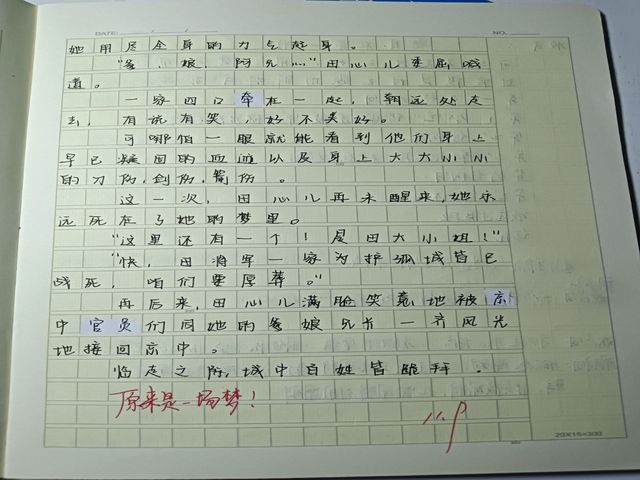 DATE: / /
NO.
她用尽全身的力气起身。
“爹，娘，阿兄……”田心儿委屈喊
道。
一家四口牵在一起，朝远处走
去，有说有笑，好不美好。
可哪怕一眼就能看到他们身上
早已凝固的血迹以及身上大大小小
的刀伤，剑伤，箭伤。
这一次，田心儿再未醒来，她永
远死在了她的梦里。
“这里还有一个！是田大小姐！”
“快，田将军一家为护孤城皆已
战死，咱们要厚葬。”
再后来，田心儿满脸笑意地被京
中官员们同她的爹娘兄长一齐风光
地接回京中。
临走之际，城中百姓皆跪拜
原来是一场梦！
20X15=300